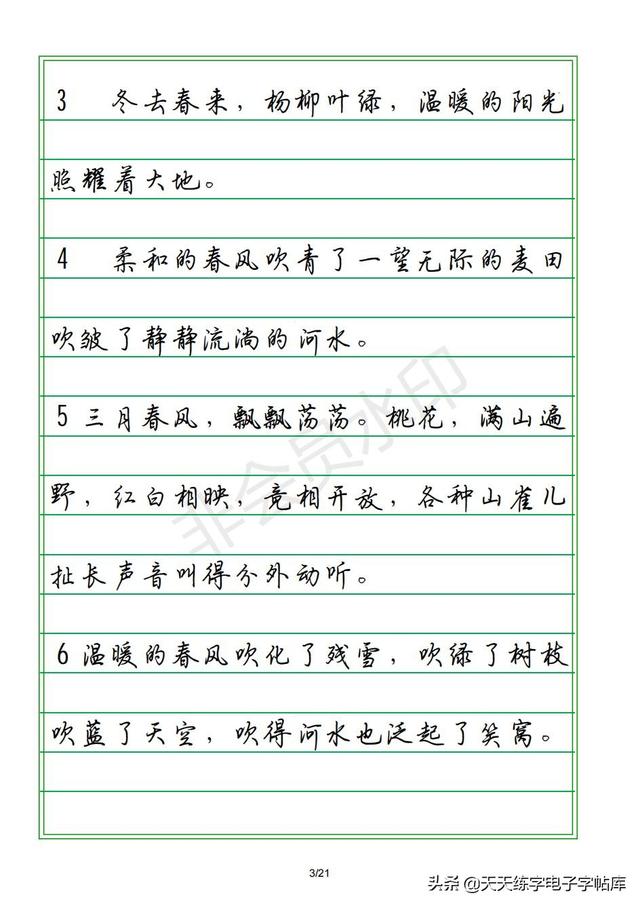 3 冬去春来，杨柳叶绿，温暖的阳光
照耀着大地。
4 柔和的春风吹青了一望无际的麦田
吹皱了静静流淌的河水。
5 三月春风，飘飘荡荡。桃花，满山遍
野，红白相映，竞相开放，各种山雀儿
扯长声音叫得分外动听。
6 温暖的春风吹化了残雪，吹绿了树枝
吹蓝了天空，吹得河水也泛起了笑窝。
非会员水印
3/21
头条 @天天练字电子字帖库